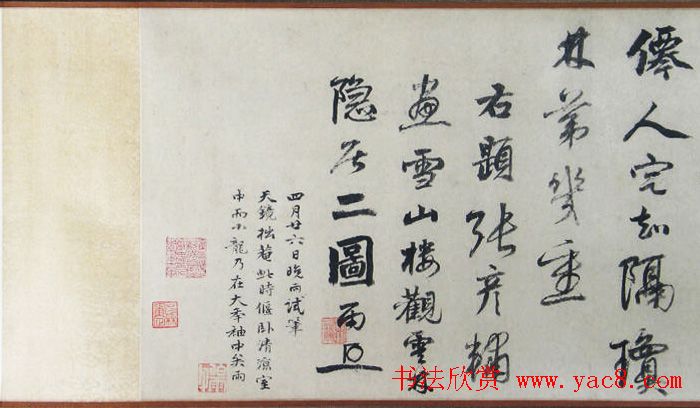 僊人定知隔瓊
林第幾重
右題張彥輔
畫雪山樓觀雲林
隱居二圖雨上
四月廿六日晚雨試筆
天鏡拙菴此時偃卧清涼室
中而小龍乃在大年袖中矣雨
书法欣赏 www.yac8.com